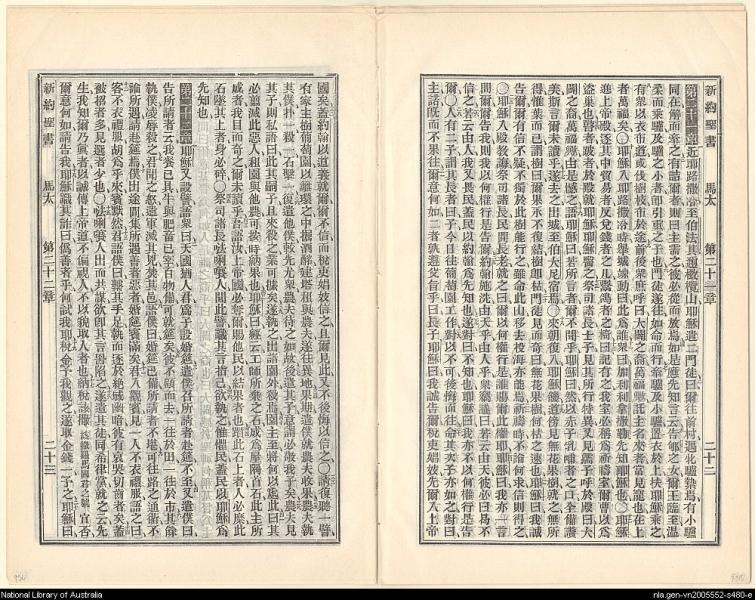 新約聖書 馬太 第二十一章 二十二
第二十一章 近耶路撒冷至伯法其邁橄欖山耶穌遣二門徒曰爾往前村遇牝驢縶焉有小驢
同在解而牽之有詰爾者則曰主需之彼必從而放焉如是應先知言云告郇之女爾王臨至溫
柔而乘驢及驢之小者卽引重之子也門徒遂往如命而行牽驢及小驢置衣於上扶耶穌乘之
有衆以衣布道或伐樹枝布於途前後衆庶呼曰大闢之裔萬福託主名來者當見寵也在上
者萬福矣○耶穌入耶路撒冷時舉城竦動曰此爲誰衆曰加利利拿撒勒先知耶穌也○耶穌
進上帝殿逐其中貿易者反兌錢者之几鬻鴿者之椅曰記有之我室必稱爲祈禱室爾曹以爲
盜巢也瞽者跛者於殿就耶穌耶穌醫之祭司諸長士子見其所行特異又見童子呼於殿曰大
闢之裔萬福由是憾之語耶穌曰若所言者爾聞乎耶穌曰然以赤子乳哺者之口全備讚
美斯言爾未讀乎遂去之出城至伯大尼宿焉○來朝復入耶穌饑道傍見無花果樹就之無所
得惟葉而已謂樹曰爾果永不復結樹卽枯門徒見而奇曰無花果樹何枯之速也耶穌曰我誠
告爾有信不疑不獨於此樹能行之雖命此山移去投海亦能焉祈禱時不論何求信則得之
○耶穌入殿敎誨祭司諸長民間長老就之曰爾以何權行是誰賜爾此權耶穌曰我亦一言
問爾爾告我我則以何權行是告爾約翰施洗由天乎由人乎衆竊議曰若云由天彼必曰曷不
信之若云由人我又畏民蓋民以約翰爲先知也遂對曰不知也耶穌曰我亦不以何權行是告
爾○人有二子謂其長者曰子今日往葡萄園工作對曰不可後悔而往命其次子亦如之對曰
主諾旣而不果往爾意何如二者孰遵父旨乎曰長子耶穌曰我誠告爾稅吏娼妓先爾入上帝
國矣蓋約翰以道義就爾爾不信而稅吏娼妓信之且爾見此又不後悔以信之○請復聽一譬
有家主樹葡萄園以籬環之中掘酒醡建塔租與農夫遂往異地果期遣僕就農夫收果農夫執
其僕扑一殺一石擊一復遣他僕較先尤衆農夫待之如故後遣其子意謂必敬我子矣農夫見
其子則私語曰此其嗣子且來殺之業可儲矣遂執之出諸園外殺焉園主至將何以處此曰其
必翦滅此惡人租園與他農可按時納果也耶穌曰經云工師所棄之石成爲屋隅首石此主所
成者我目而奇之爾未讀乎吾語汝上帝國必奪爾賜他民以結果者也躓此石上者必麼此
石墜其上者身必碎○祭司諸長𠵽唎㘔人聞此譬識其言指己欲執之惟懼民蓋民以耶穌爲
先知也
第二十二章 耶穌又設譬語衆曰天國猶人君爲子設婚筵遣僕召所請者赴筵不至又遣僕曰
告所請者云我饗已具牛與肥畜已宰百物備可就筵矣彼不顧而去一往於田一往於市其餘
執僕凌辱殺之君聞之怒遣軍滅其兇焚其邑語僕曰婚筵已備所請者不堪可往路之通衢不
論所遇請赴筵焉僕出途間集所遇善者惡者婚筵賓滿矣君入觀賓見一人不衣禮服語之曰
客不衣禮服胡爲乎來賓默然君語僕曰縶其手足執而逐於絕域幽暗彼有哀哭切齒者矣蓋
被招者多見選者少也○𠵽唎㘔人出而共謀欲卽其言罟陷之遂遣其徒同希律黨就之云先
生我知爾乃眞者以誠傳上帝道不偏視人不以貌取人者也納稅該撒宜否
爾意何如請告我耶穌識其詐曰僞善者乎何試我耶稅金予我觀之遂取金錢一予之耶穌曰
新約聖書 馬太 第二十二章 二十三
National Library of Australia
nla.gen-vn2005552-s480-e